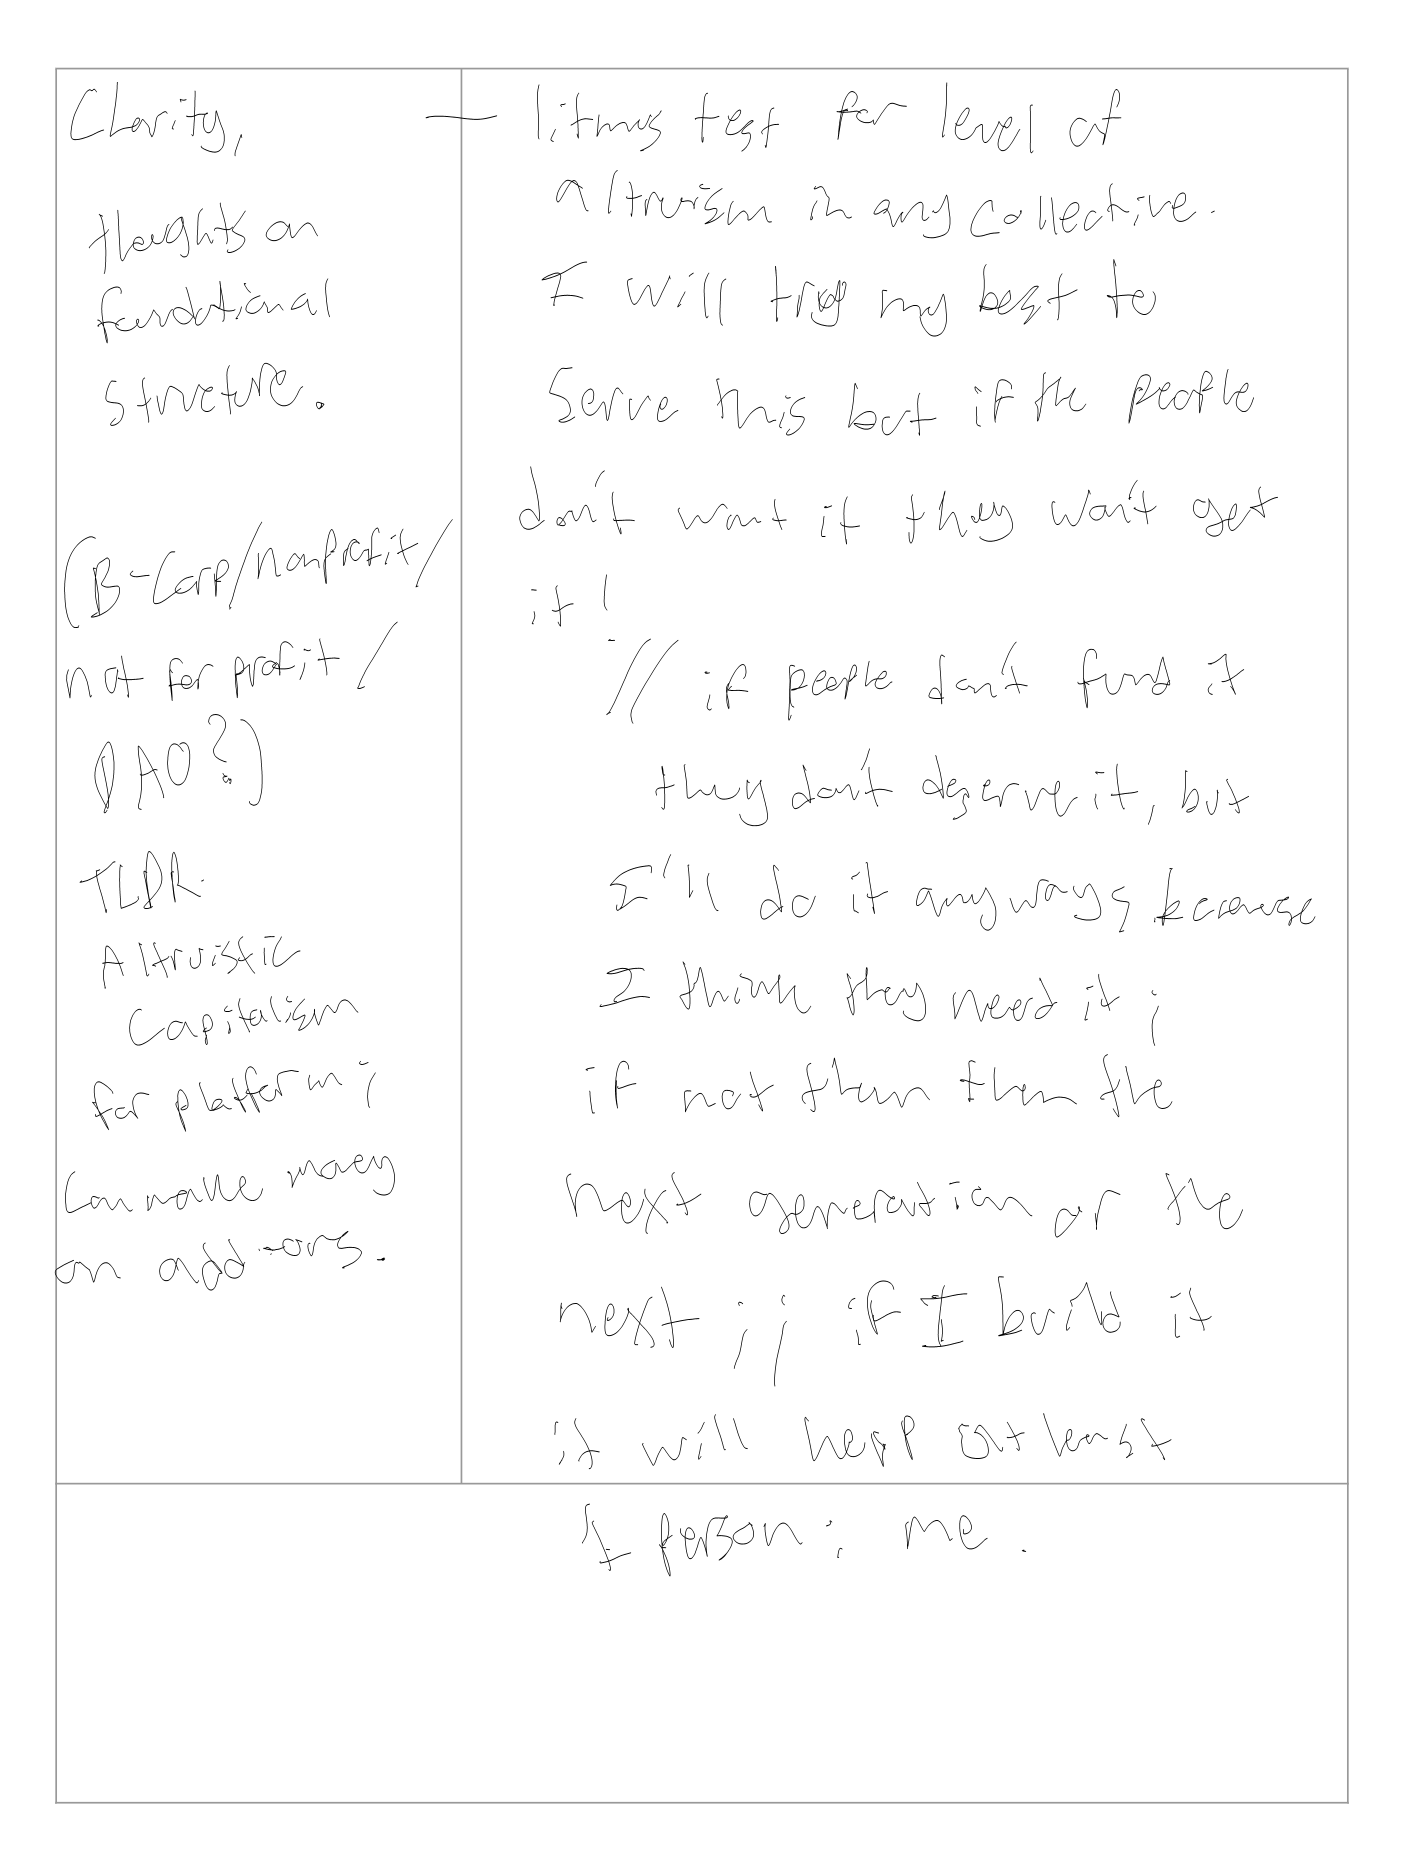 Clarity,
thoughts on
foundational
structure.
(B-Corp/nonprofit/
not for profit/
DAO?)
TLDR.
Altruistic
Capitalism
for platform;
Can make money
on add-ons.
— litmus test for level of
altruism in any collective.
I will try my best to
serve this but if the people
don't want it they won't get
it!
// if people don't fund it
they don't deserve it, but
I'll do it anyways because
I think they need it;
if not them then the
next generation or the
next ;; if I build it
it will help at least
1 person: me.